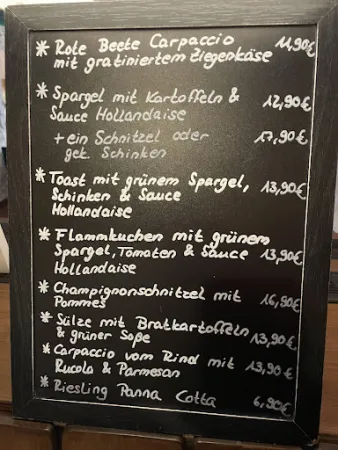 * Rote Beete Carpaccio 11,90€
mit gratiniertem Ziegenkäse
* Spargel mit Kartoffeln & 12,90€
Sauce Hollandaise
+ ein Schnitzel oder 17,90€
gek. Schinken
* Toast mit grünem Spargel, 13,90€
Schinken & Sauce
Hollandaise
* Flammkuchen mit grünem
Spargel, Tomaten & Sauce 13,90€
Hollandaise
* Champignonschnitzel mit 16,90€
Pommes
* Sülze mit Bratkartoffeln 13,90€
& grüner Soße
* Carpaccio vom Rind mit 13,90€
Rucola & Parmesan
* Riesling Panna Cotta 6,90€